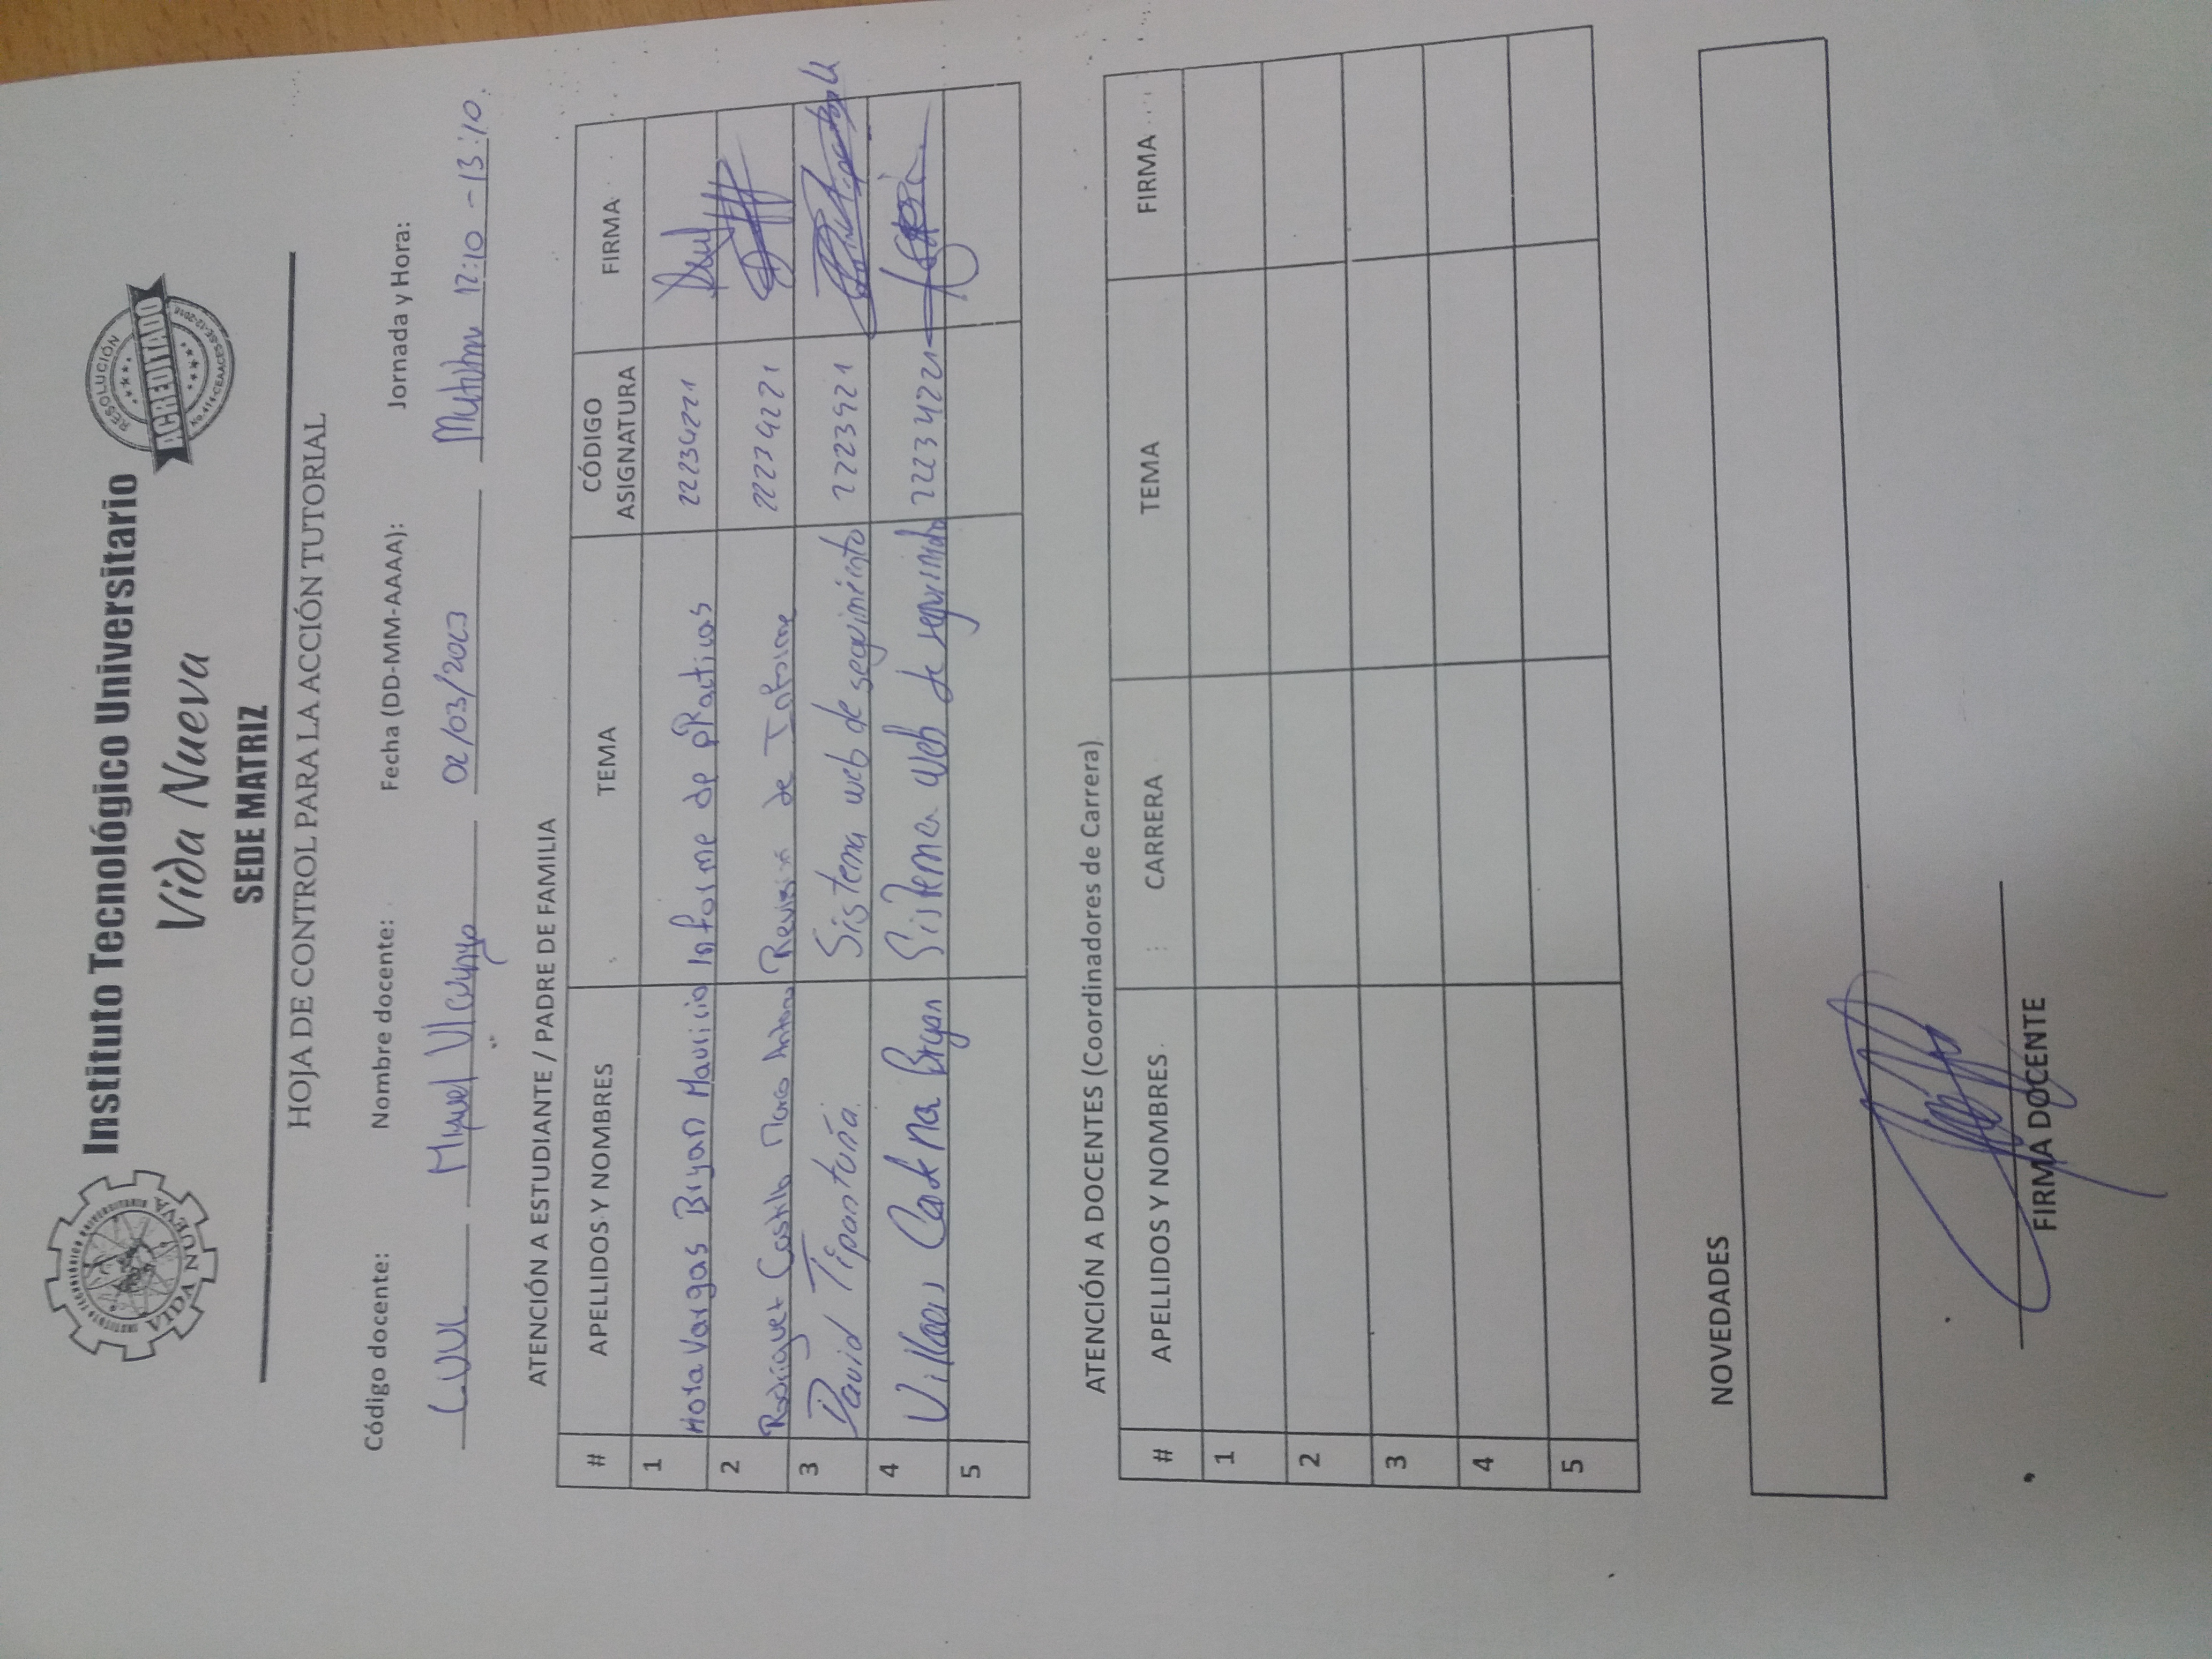 INSTITUTO TECNOLÓGICO UNIVERSITARIO
VIDA NUEVA
Instituto Tecnológico Universitario
Vida Nueva
SEDE MATRIZ
RESOLUCIÓN
ACREDITADO
No.414-CEAACES-SE-12-2016
HOJA DE CONTROL PARA LA ACCIÓN TUTORIAL
Código docente: Nombre docente: Fecha (DD-MM-AAAA): Jornada y Hora:
Miguel 02/03/2023 12:10 - 13:10
ATENCIÓN A ESTUDIANTE / PADRE DE FAMILIA
# APELLIDOS Y NOMBRES TEMA CÓDIGO ASIGNATURA FIRMA
1 Vargas Bryan Mauricio Informe de pRacticas 22234221
2 Rodriguez Castillo Marco Antonio Revisión de Informe 22234221
3 David Tipantuña. Sistema web de seguimiento 2223421
4 Cadena Bryan Sistema web de seguimiento 22234221
5
ATENCIÓN A DOCENTES (Coordinadores de Carrera)
# APELLIDOS Y NOMBRES CARRERA TEMA FIRMA
1
2
3
4
5
NOVEDADES
FIRMA DOCENTE